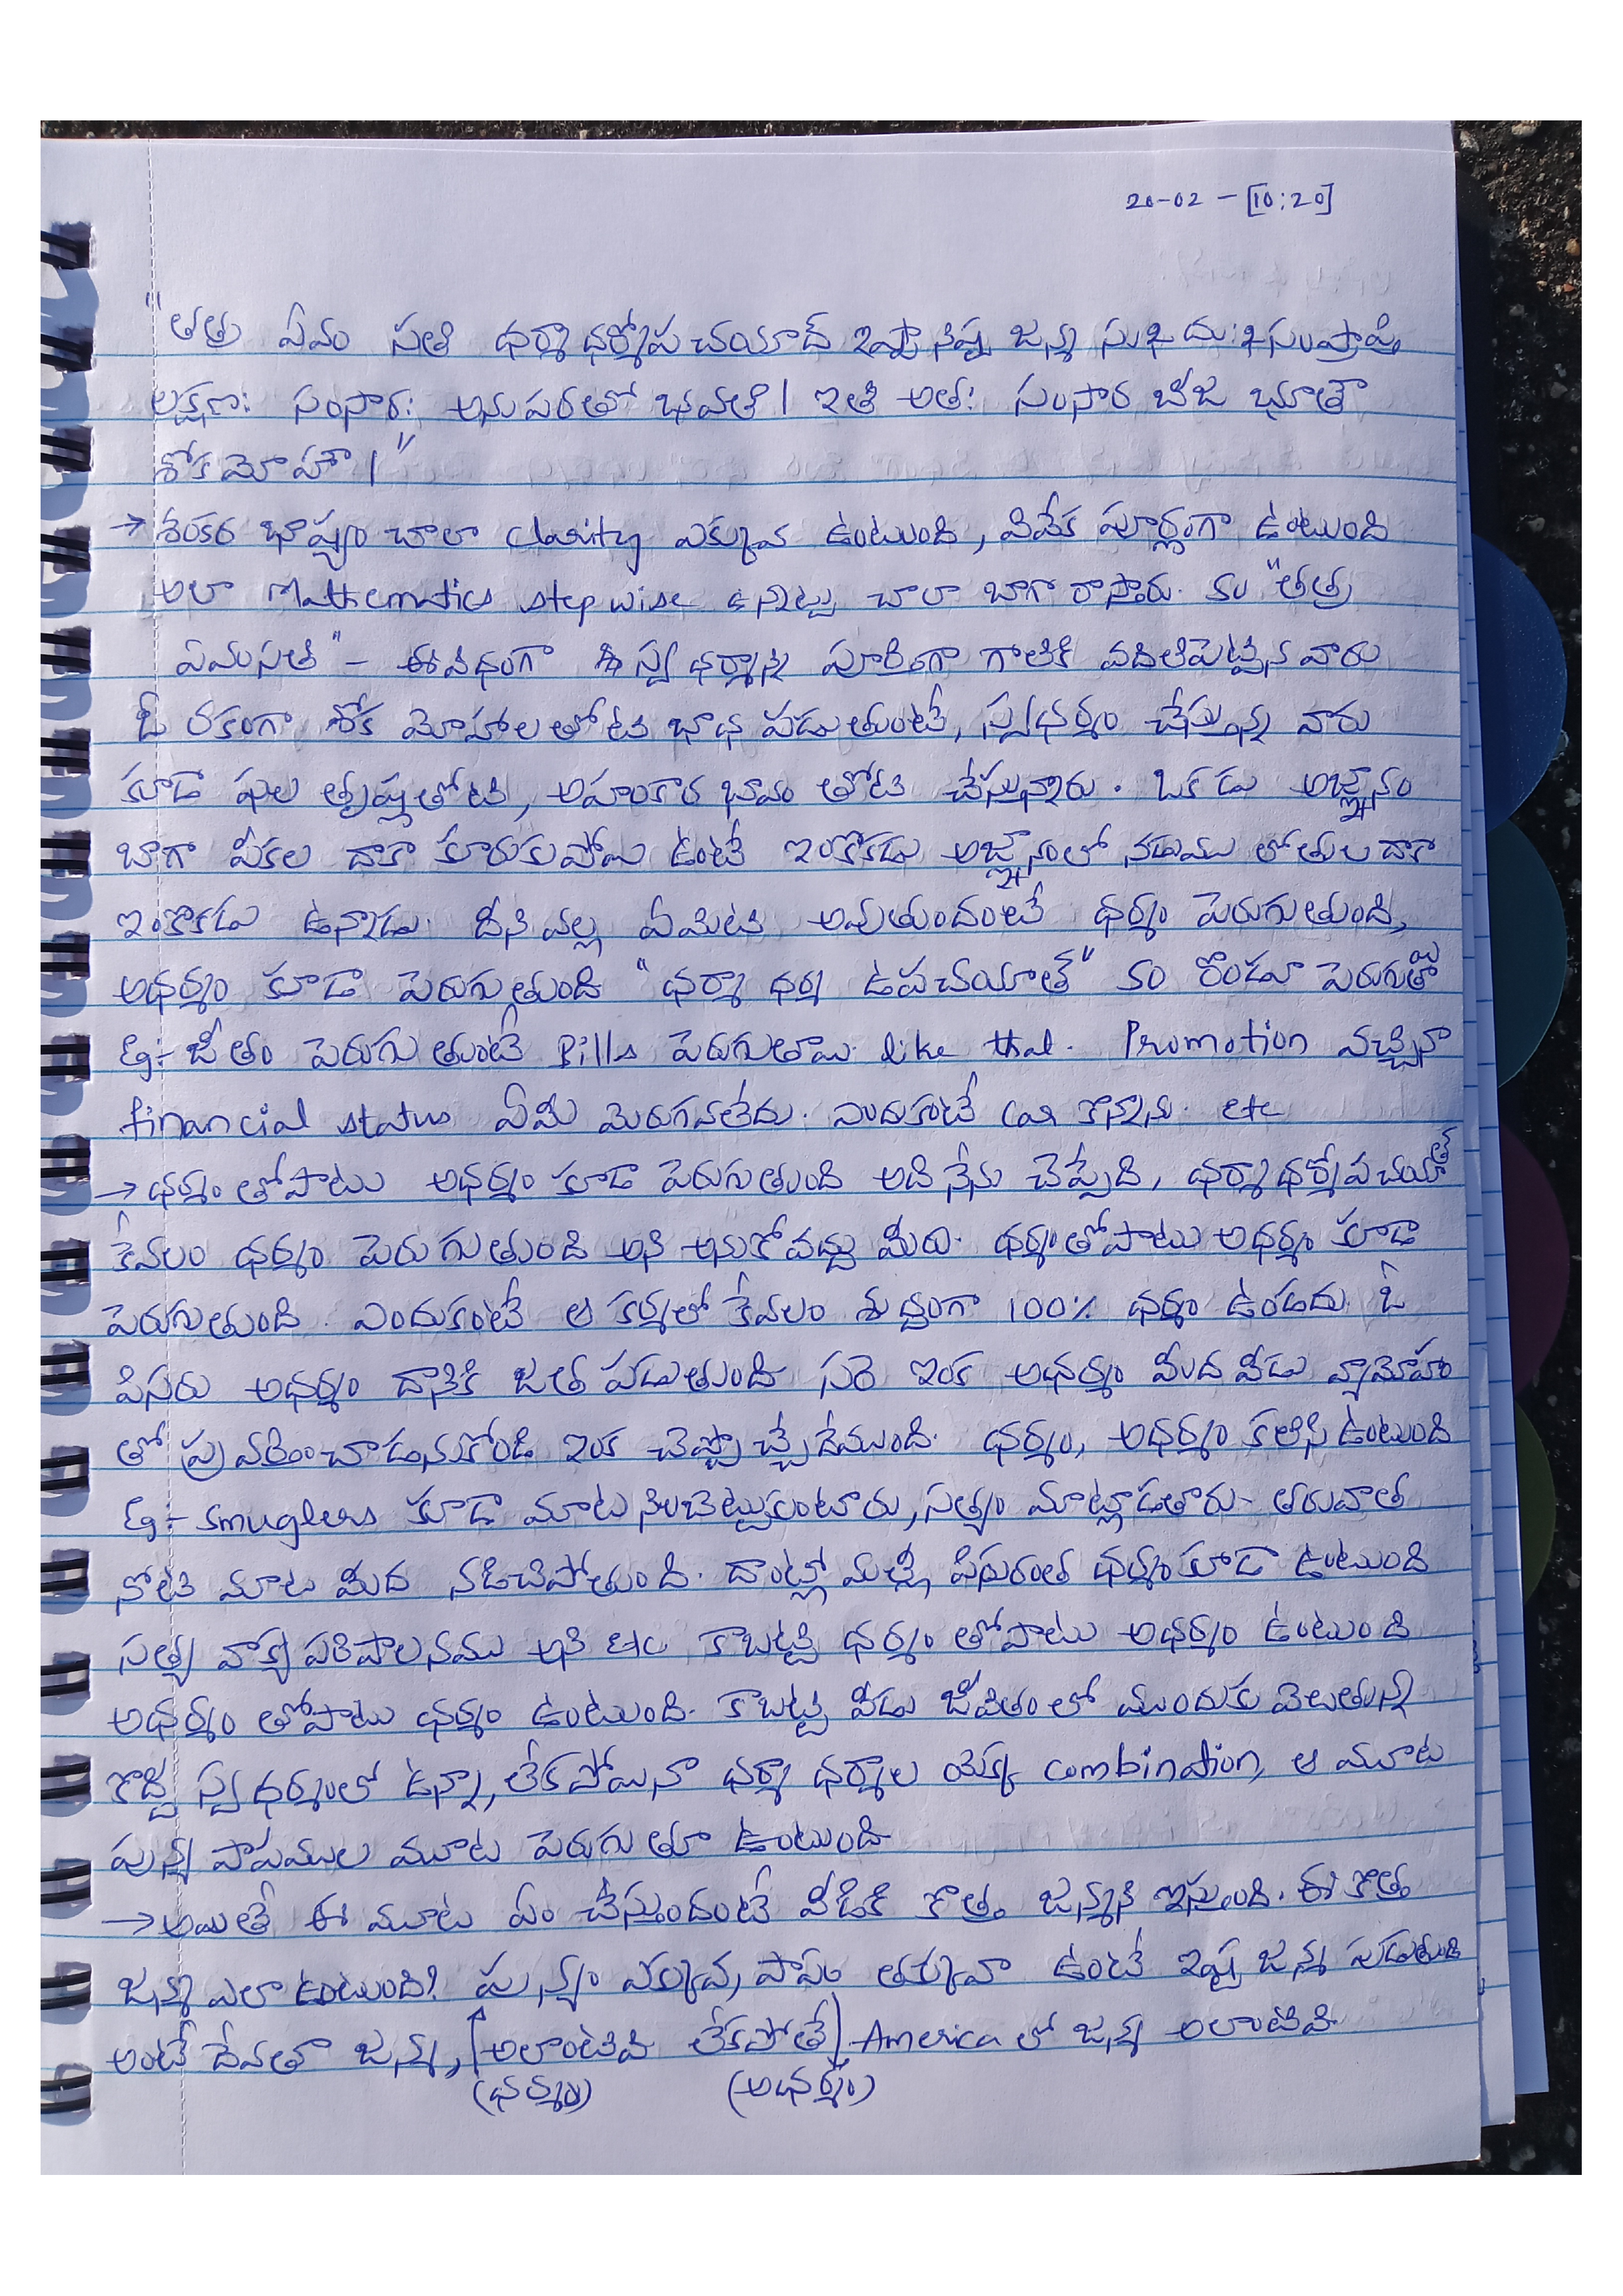 20-02 - [10:20]
"తత్ర ఏవం సతి ధర్మాధర్మోపచయాద్ ఇష్టానిష్ట జన్మ సుఖదుఃఖసంప్రాప్తి
లక్షణః సంసారః అనుపరతో భవతి। ఇతి అతః సంసార బీజ భూతౌ
శోకమోహౌ।"
→ శంకర భాష్యం చాలా clarity ఎక్కువ ఉంటుంది, వివేక పూర్ణంగా ఉంటుంది
అలా Mathematics stepwise ఉన్నట్టు చాలా బాగా రాస్తారు. కం "తత్ర
ఏవంసతి" - ఈవిధంగా స్వధర్మాన్ని పూర్తిగా గాలికి వదిలిపెట్టిన వారు
ఓ రకంగా శోక మోహాలతోటి భాధ పడుతుంటే, స్వధర్మం చేస్తున్న వారు
కూడా ఫల తృష్ణతోటి, అహంకార భావం తోటి చేస్తున్నారు. ఒకడు అజ్ఞానం
బాగా పీకల దాకా కూరుకుపోయి ఉంటే ఇంకొకడు అజ్ఞానంలో నడుము లోతుల దాకా
ఇంకొకడు ఉన్నాడు. దీనివల్ల ఏమిటి అవుతుందంటే ధర్మం పెరుగుతుంది,
అధర్మం కూడా పెరుగుతుంది "ధర్మాధర్మ ఉపచయాత్" కం రెండూ పెరుగుతాయి
Eg:- జీతం పెరుగుతుంటే Bills పెరుగుతాయి. like that. Promotion వచ్చినా
financial status ఏమీ మెరుగవలేదు. ఎందుకంటే Car కొన్నాను. etc
→ ధర్మం తోపాటు అధర్మం కూడా పెరుగుతుంది అది నేను చెప్పేది, ధర్మాధర్మోపచయాత్
కేవలం ధర్మం పెరుగుతుంది అని అనుకోవద్దు మీరు. ధర్మంతోపాటు అధర్మం కూడా
పెరుగుతుంది. ఎందుకంటే ఆ కర్మలో కేవలం శుద్ధంగా 100% ధర్మం ఉండదు. ఓ
పిసరు అధర్మం దానికి జత పడుతుంది. సరె ఇంక అధర్మం మీద వీడు వ్యామోహం
తో ప్రవర్తించాడనుకోండి ఇంక చెప్పొచ్చేదేముంది. ధర్మం, అధర్మం కలిసి ఉంటుంది
Eg:- Smuglers కూడా మాట నిలబెట్టుకుంటారు, సత్యం మాట్లాడతారు- తరువాత
నోటి మాట మీద నడిచిపోతుంది. దాంట్లో మళ్లీ పిసురంత ధర్మంకూడా ఉంటుంది
సత్య వాక్య పరిపాలనము అని etc కాబట్టి ధర్మం తోపాటు అధర్మం ఉంటుంది
అధర్మం తోపాటు ధర్మం ఉంటుంది. కాబట్టి వీడు జీవితంలో ముందుకు వెలుతున్న
కొద్ది స్వధర్మంలో ఉన్నా, లేకపోయినా ధర్మా ధర్మాల యొక్క combination, ఆ మూట
పున్య పాపముల మూట పెరుగుతూ ఉంటుంది
→ అయితే ఈ మూట ఏం చేస్తుందంటే వీడికి కొత్త జన్మని ఇస్తుంది. ఈ కొత్త
జన్మ ఎలా ఉంటుంది? పున్యం ఎక్కువ, పాపం తక్కువా ఉంటే ఇష్ట జన్మ పడుతుంది
అంటే దేవతా జన్మ, అలాంటివి లేకపోతే America లో జన్మ అలాంటివి.
(ధర్మం) (అధర్మం)